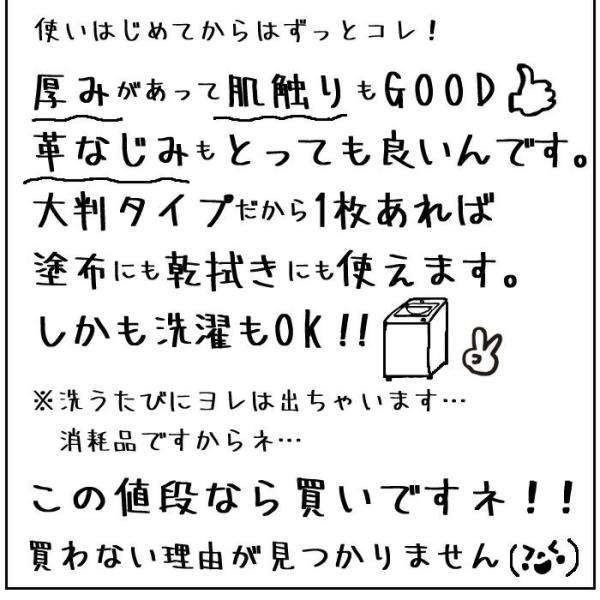 使いはじめてからはずっとコレ！
厚みがあって肌触りもGOOD
革なじみもとっても良いんです。
大判タイプだから1枚あれば
塗布にも乾拭きにも使えます。
しかも洗濯もOK!!
※洗うたびにヨレは出ちゃいます…
消耗品ですからネ…
この値段なら買いですネ！！
買わない理由が見つかりません